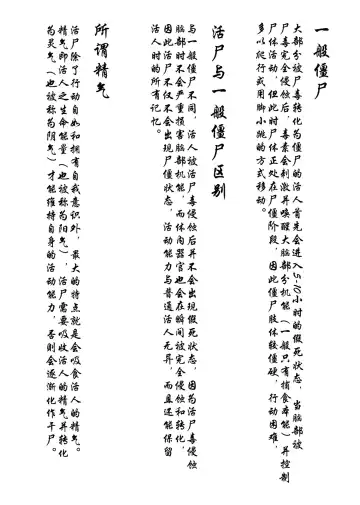 一般僵尸
大部分被尸毒转化为僵尸的活人首先会进入5-10小时的假死状态，当脑部被
尸毒完全侵蚀后，毒素会刺激并唤醒大脑部分机能（一般只有捕食本能）并控制
尸体活动，但此时尸体正处在尸僵阶段，因此僵尸肢体较僵硬，行动困难，
多以爬行或用脚小跳的方式移动。
活尸与一般僵尸区别
与一般僵尸不同，活人被活尸毒侵蚀后并不会出现假死状态，因为活尸毒侵蚀
脑部时不会严重损害脑部机能，而体内器官也会在瞬间被完全侵蚀和转化，
因此活尸不仅不会出现尸僵状态，活动能力与普通活人无异，而且还能保留
活人时的所有记忆。
所谓精气
活尸除了行动自如和拥有自我意识外，最大的特点就是会吸食活人的精气。
精气即活人之生命能量（也被称为阳气），活尸需要吸收活人的精气并转化
为灵气（也被称为阴气）才能维持自身的活动能力，否则会逐渐化作干尸。